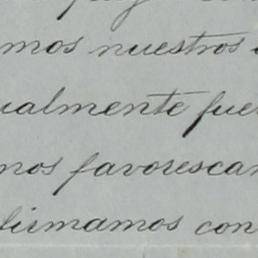 mos nuestros
ualmente fue
nos favorescan
firmamos con